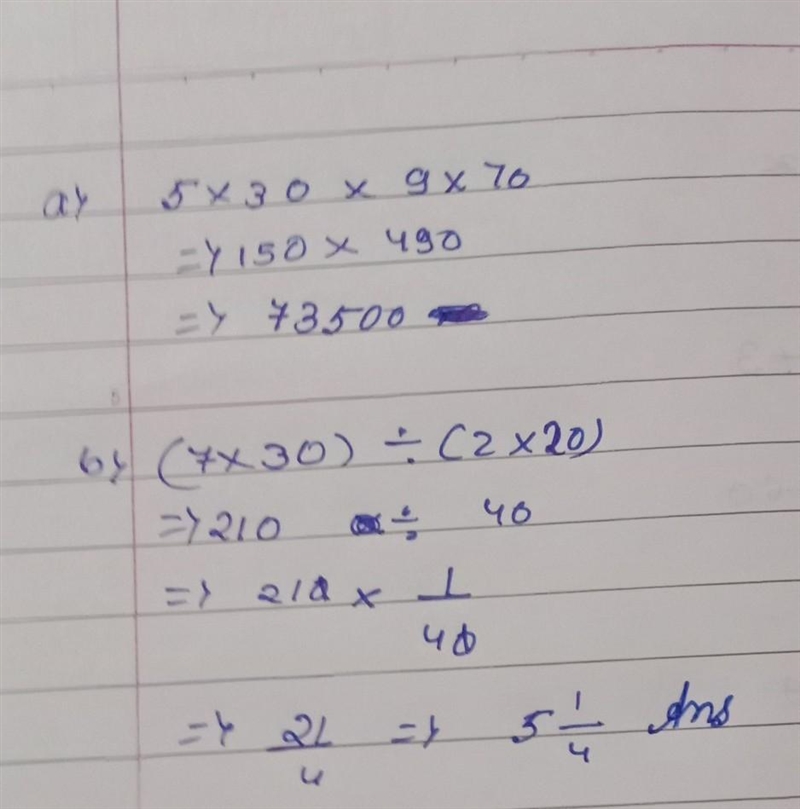 a) 5 × 30 × 9 × 70
=> 150 × 490
=> 73500
b) (7 × 30) ÷ (2 × 20)
=> 210 ÷ 40
=> 210 × 1/40
=> 21/4 => 5 1/4 Ans